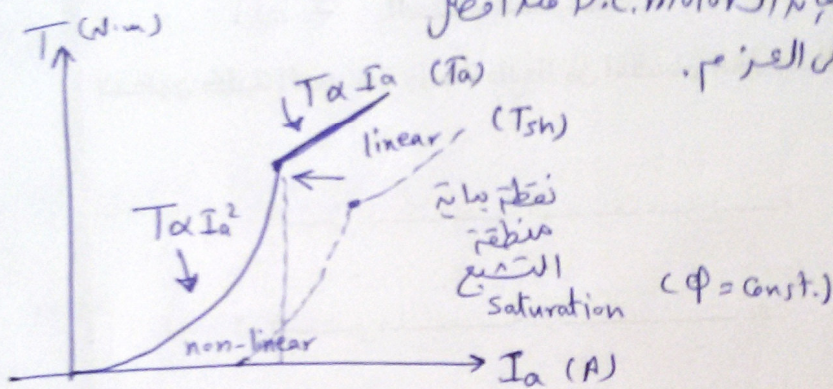 D.C. motor
T (N.m)
العزم.
T α Ia (Ta)
linear (Tsh)
T α Ia²
نقطة بداية
منطقة
التشبع
saturation (Φ = Const.)
non-linear
Ia (A)